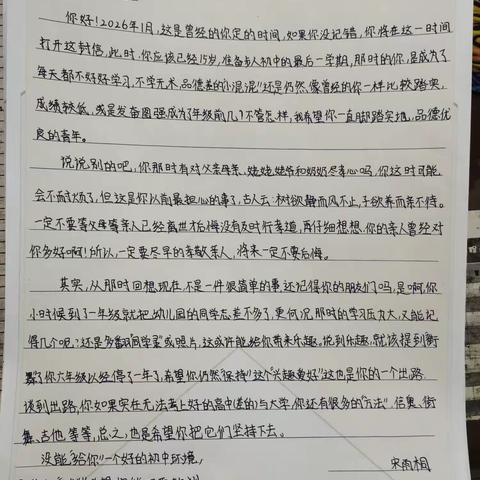 你好!2026年1月,这是曾经的你定的时间,如果你没记错,你将在这一时间
打开这封信,此时,你应该已经15岁,准备步入初中的最后一学期,那时的你,是成为了
每天都不好好学习,不学无术,品德差的“小混混”还是仍然像曾经的你一样比较踏实,
成绩较低,或是发奋图强成为了年级前几?不管怎样,我希望你一直脚踏实地,品德优
良的青年。
说说别的吧,你那时有对父亲母亲、姥姥姥爷和奶奶尽孝心吗,你这时可能
会不耐烦了,但这是你以前最担心的事了,古人云:树欲静而风不止,子欲养而亲不待。
一定不要等父母等亲人已经离世才后悔没有及时行孝道,再仔细想想,你的亲人曾经对
你多好啊!所以,一定要尽早的孝敬亲人,将来一定不要后悔。
其实,从那时回想现在,不是一件很简单的事,还记得你的朋友们吗,是啊,你
小时候到了一年级就把幼儿园的同学忘差不多了,更何况,那时的学习压力大,又能记
得几个呢?还是多翻翻“同学录”或照片,这或许能给你带来乐趣。说到乐趣,就该提到街
舞了,你六年级以经停了一年了,希望你仍然“保持”这个“兴趣爱好”这也是你的一个出路.
谈到出路,你如果实在无法考上好的高中(差的)与大学,你还有很多的“方法”,信奥、街
舞、吉他,等等,总之,也是希望你把它们坚持下去。
没能“给你”一个好的初中环境,
宋雨相